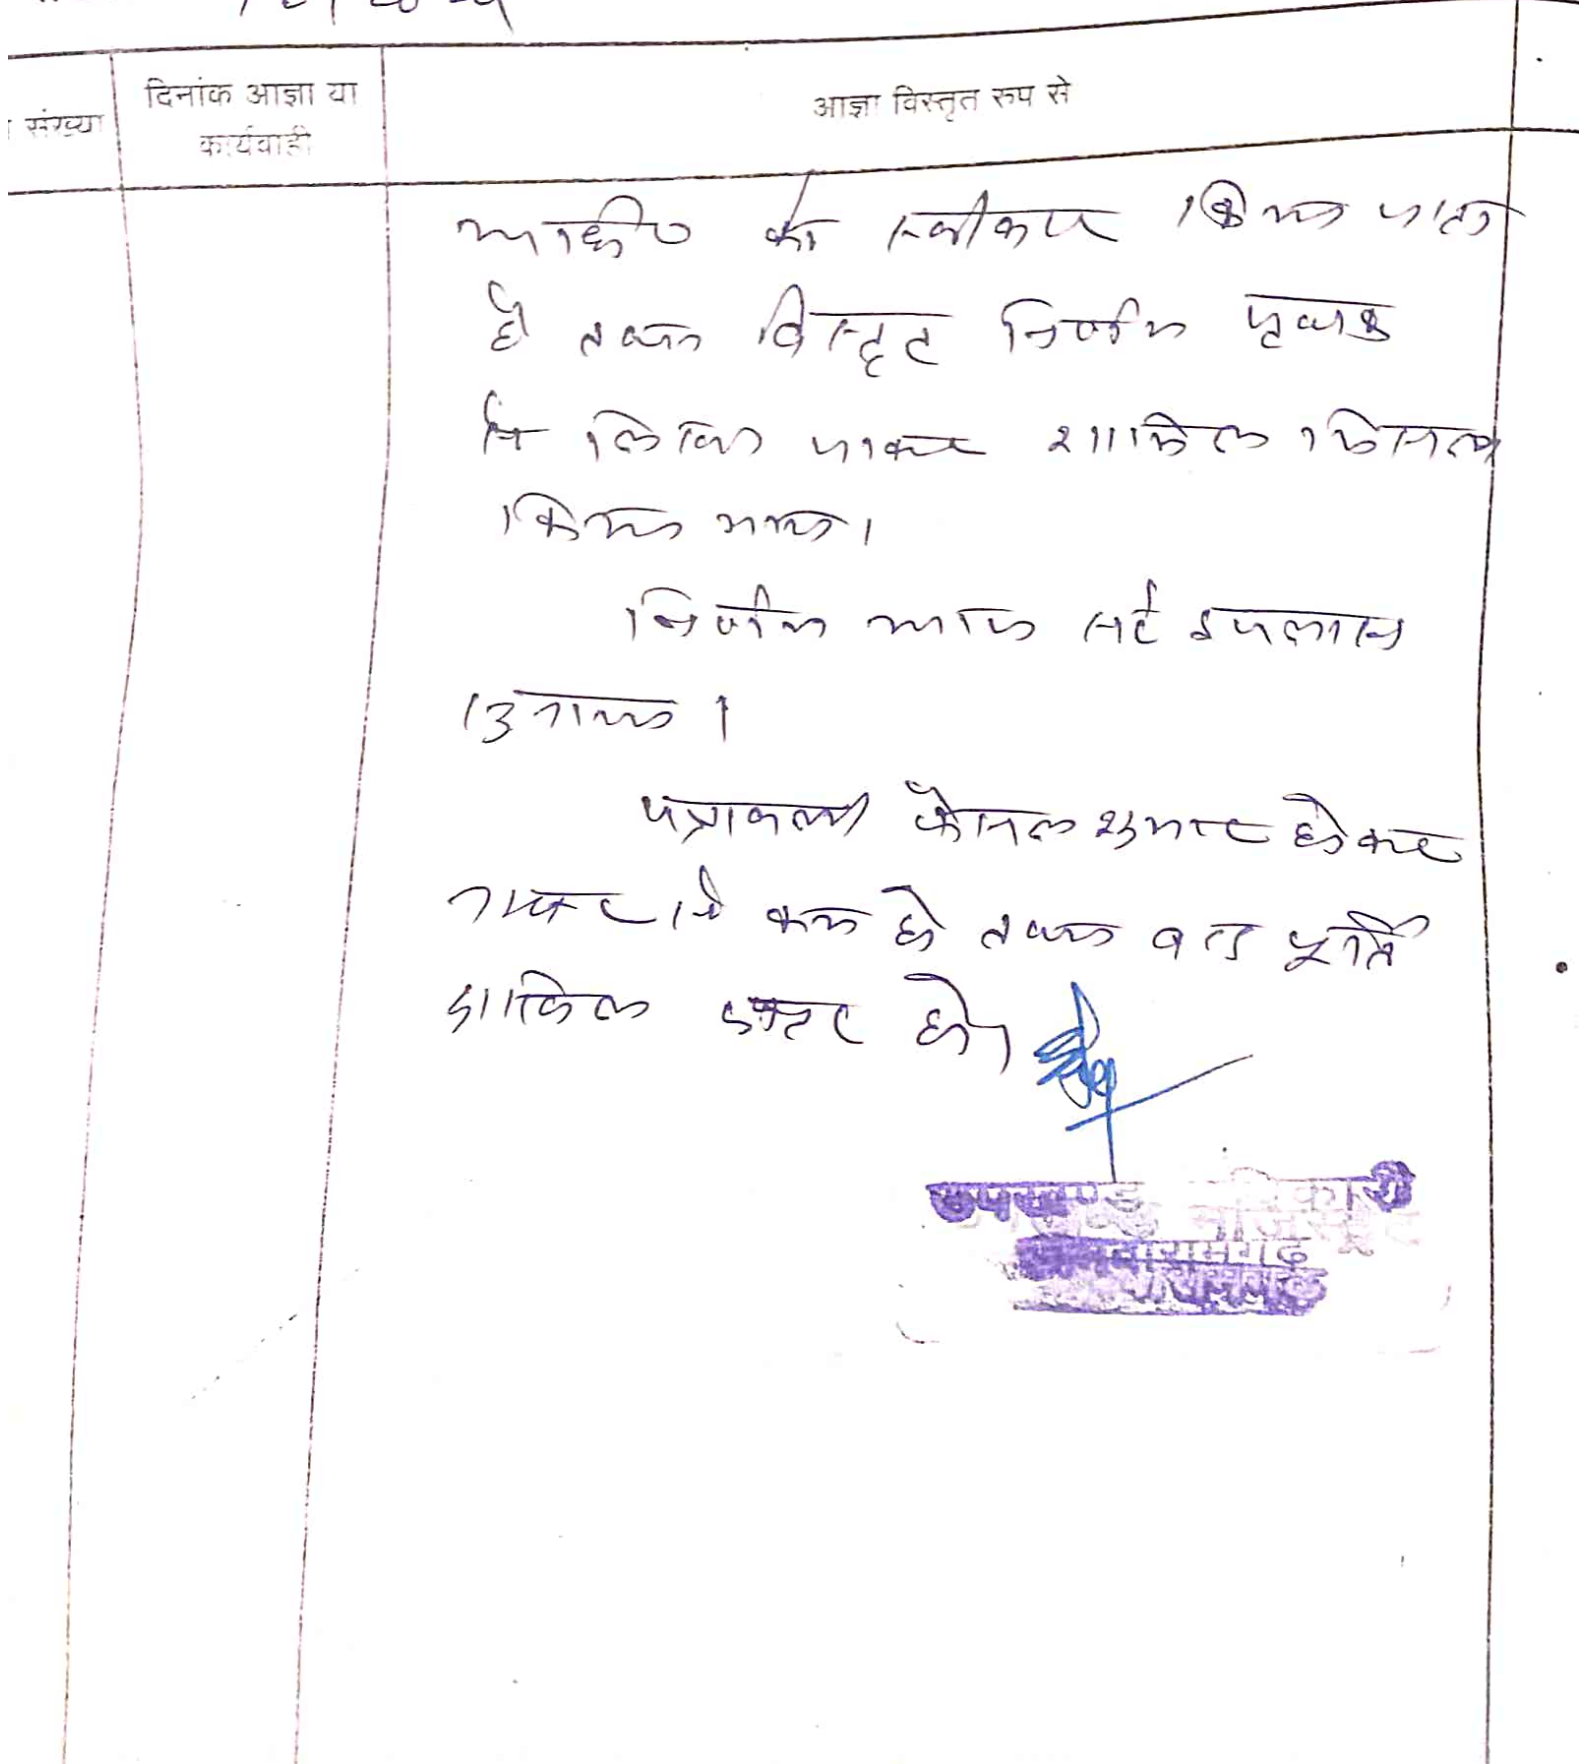 संख्या
दिनांक आज्ञा या
कार्यवाही
आज्ञा विस्तृत रूप से
को स्वीकार किया जाता
है तथा विस्तृत निर्णय पृथक
से लिखा जाकर शामिल मिसल
किया गया।
निर्णय आज सरे इजलास
सुनाया।
पत्रावली फैसल शुमार होकर
नम्बर से कम हो तथा बाद पूर्ति
दाखिल दफ्तर हो।
उपखण्ड अधिकारी